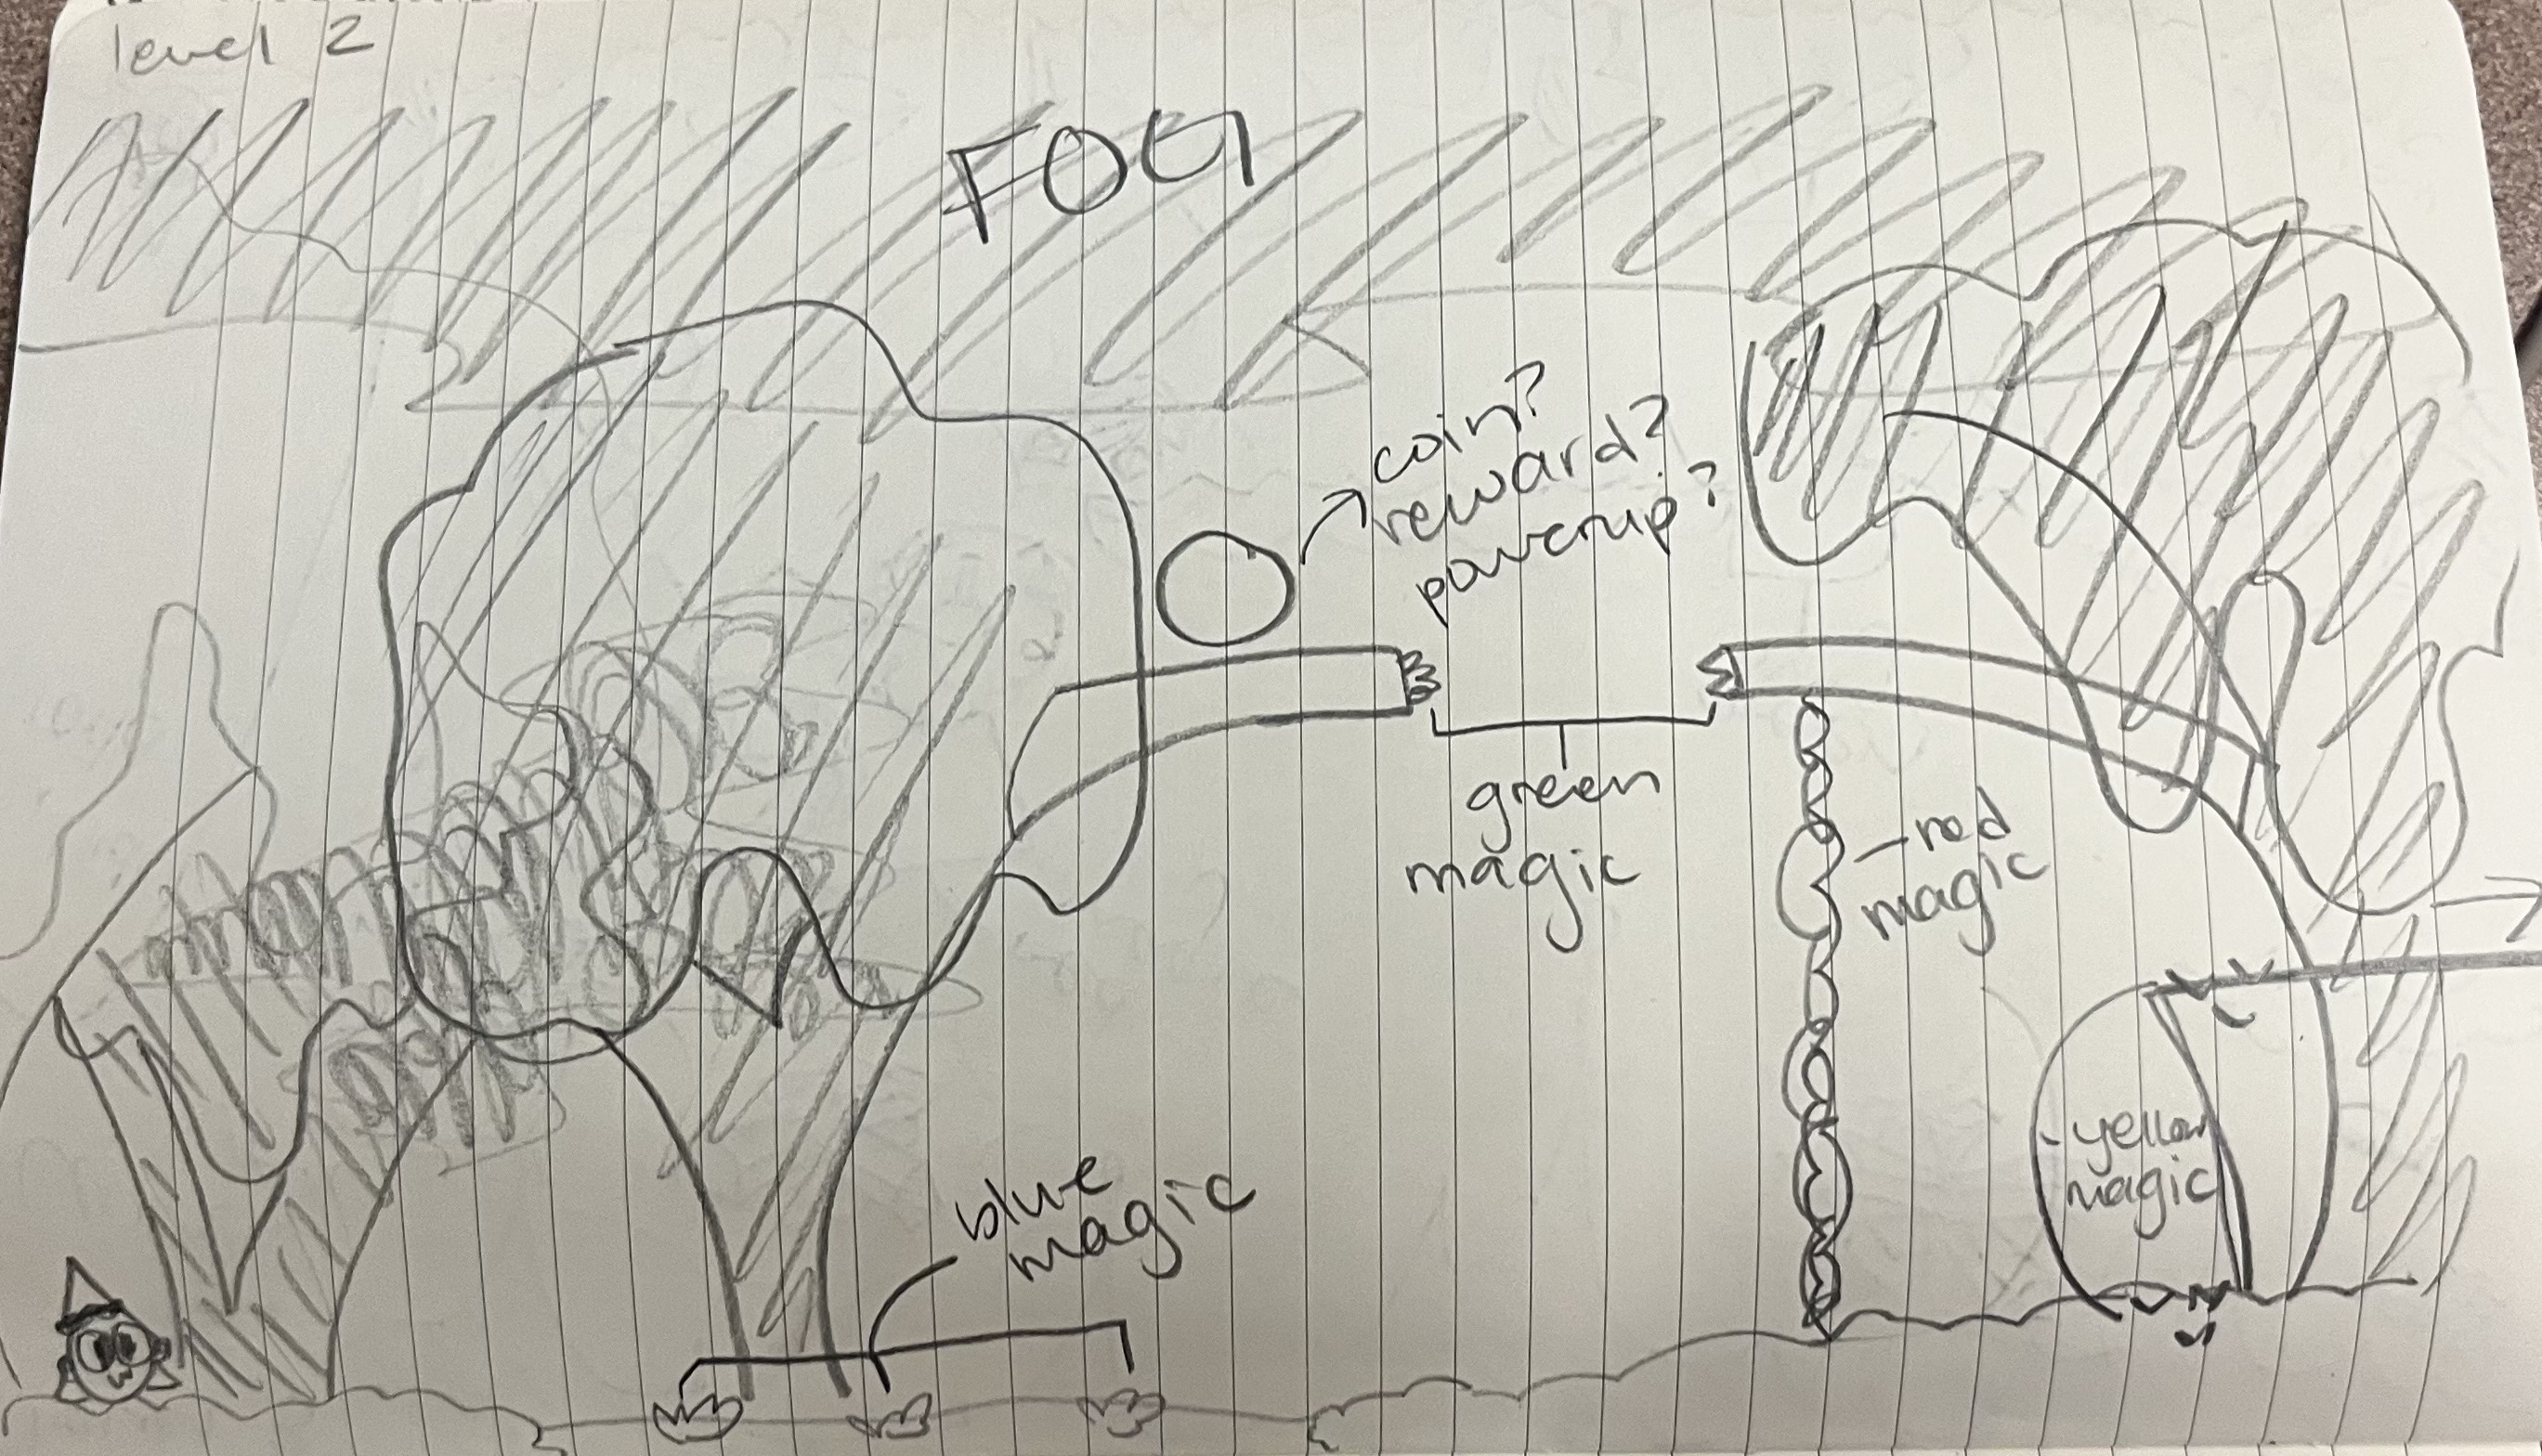 level 2
FOG
coin?
reward?
powerup?
green
magic
-red
magic
blue
magic
-yellow
magic